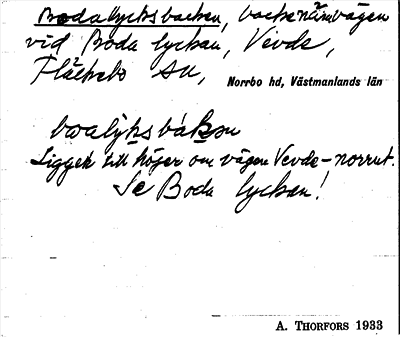 Bodalycksbacken, backe nära vägen
vid Boda lyckan, Vevde,
Fläckebo sn, Norrbo hd, Västmanlands län
boalyksbákən
Ligger till höger om vägen Vevde-norrut.
Se Boda lyckan!
A. THORFORS 1933